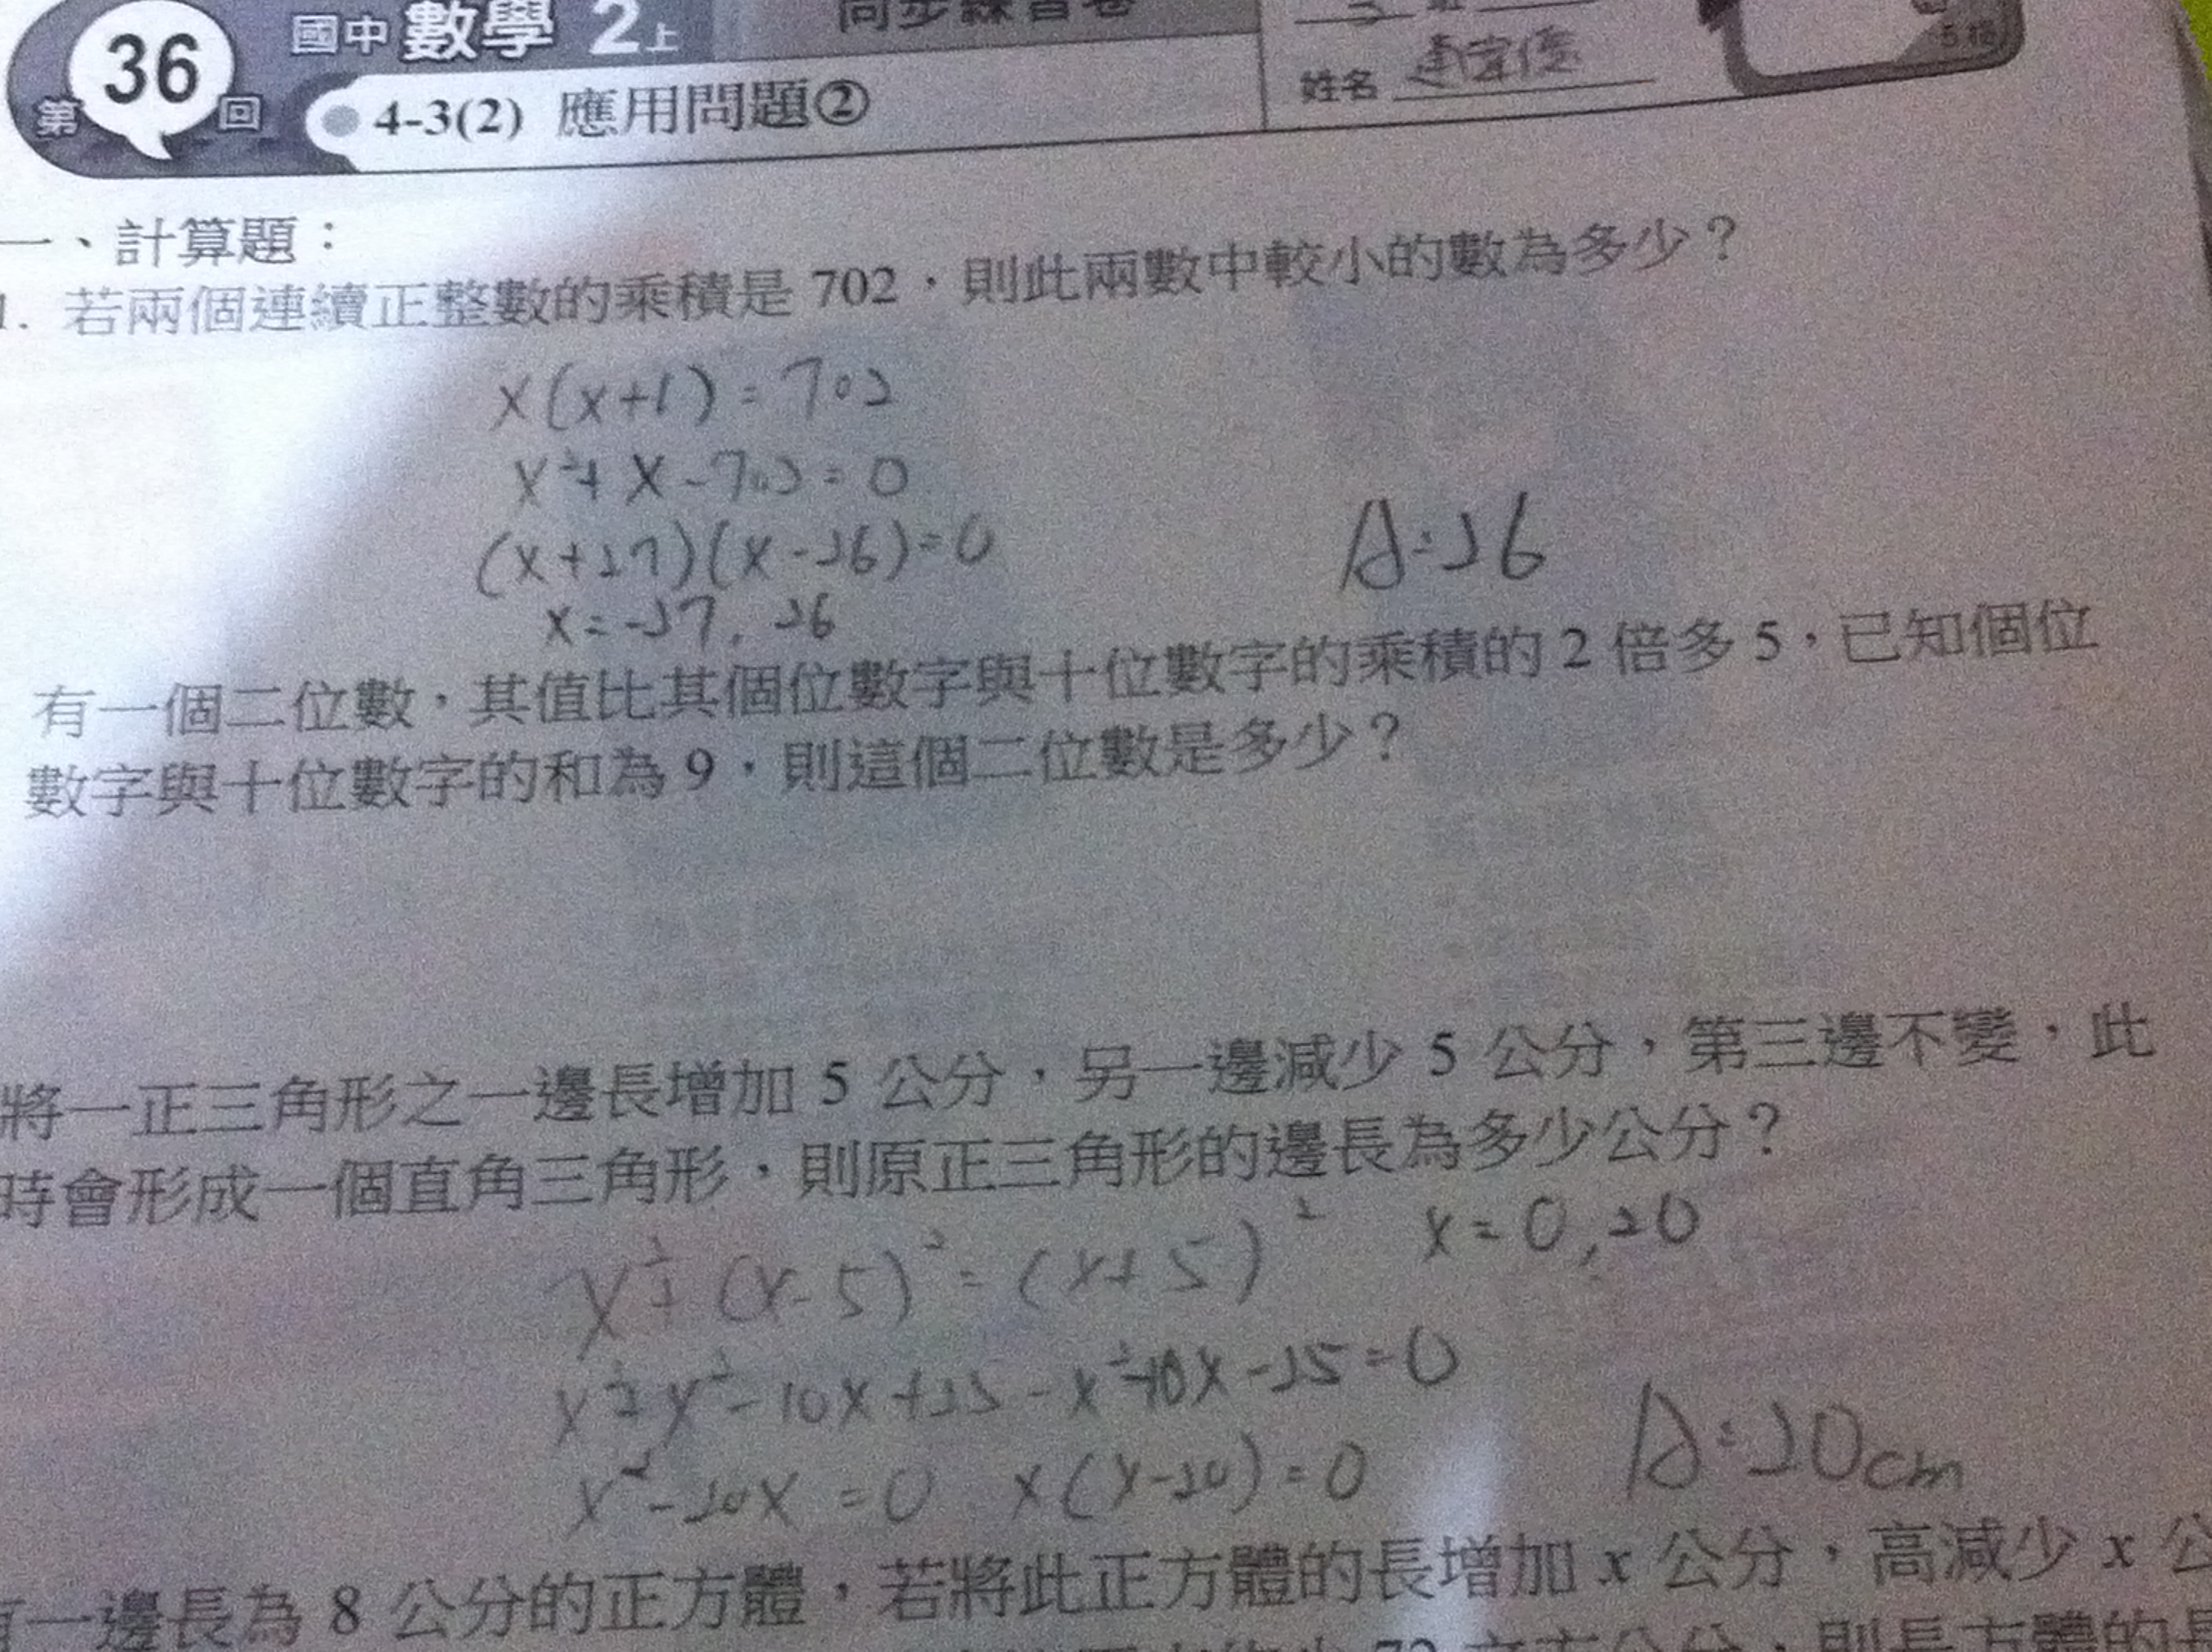 第 36 回 國中 數學 2上 同步練習卷
4-3(2) 應用問題②
姓名
一、計算題：
1. 若兩個連續正整數的乘積是 702，則此兩數中較小的數為多少？
x(x+1)=702
x²+x-702=0
(x+27)(x-26)=0
A:26
x=-27, 26
有一個二位數，其值比其個位數字與十位數字的乘積的 2 倍多 5，已知個位
數字與十位數字的和為 9，則這個二位數是多少？
將一正三角形之一邊長增加 5 公分，另一邊減少 5 公分，第三邊不變，此
時會形成一個直角三角形，則原正三角形的邊長為多少公分？
x²+(x-5)²=(x+5)² x=0,20
x²+x²-10x+25-x²-10x-25=0
x²-20x=0 x(x-20)=0
A:20cm
有一邊長為 8 公分的正方體，若將此正方體的長增加 x 公分，高減少 x 公
72 立方公分，則長方體的